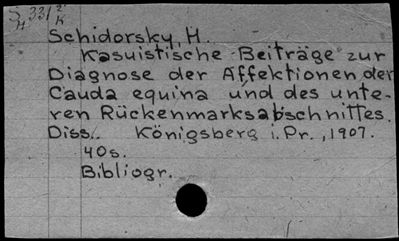 S 331 2
H K
Schidorsky, H.
Kasuistische Beiträge zur
Diagnose der Affektionen der
Cauda equina und des unte-
ren Rückenmarksabschnittes.
Diss. Königsberg i. Pr., 1907.
40s.
Bibliogr.